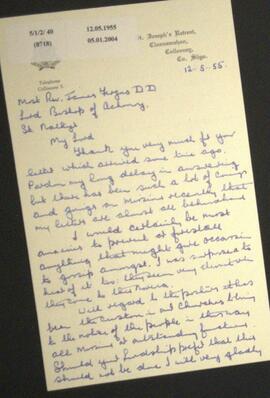 5/1/2/ 40
(8718)
12.05.1955
05.01.2004
St. Joseph's Retreat,
Cloonamahon,
Collooney,
Co. Sligo.
Telephone
Collooney 5.
12-5-55.
Most Rev. James Fergus D D
Lord Bishop of Achonry.
St Nathys
My Lord
Thank you very much for your
letter which arrived some time ago.
Pardon my long delay in answering
but there has been such a lot of comings
and goings on Missions recently that
my letters are almost all behindhand
I would certainly be most
anxious to prevent or forestall
anything that might give occasion
to gossip amongst
heat of it too
they come to the
With regard to the posters it has
been the custom in all Churches bring
to the notice of the people in this way
all Missions or outstanding functions.
Should your Lordship prefer that this
should not be done I will very gladly